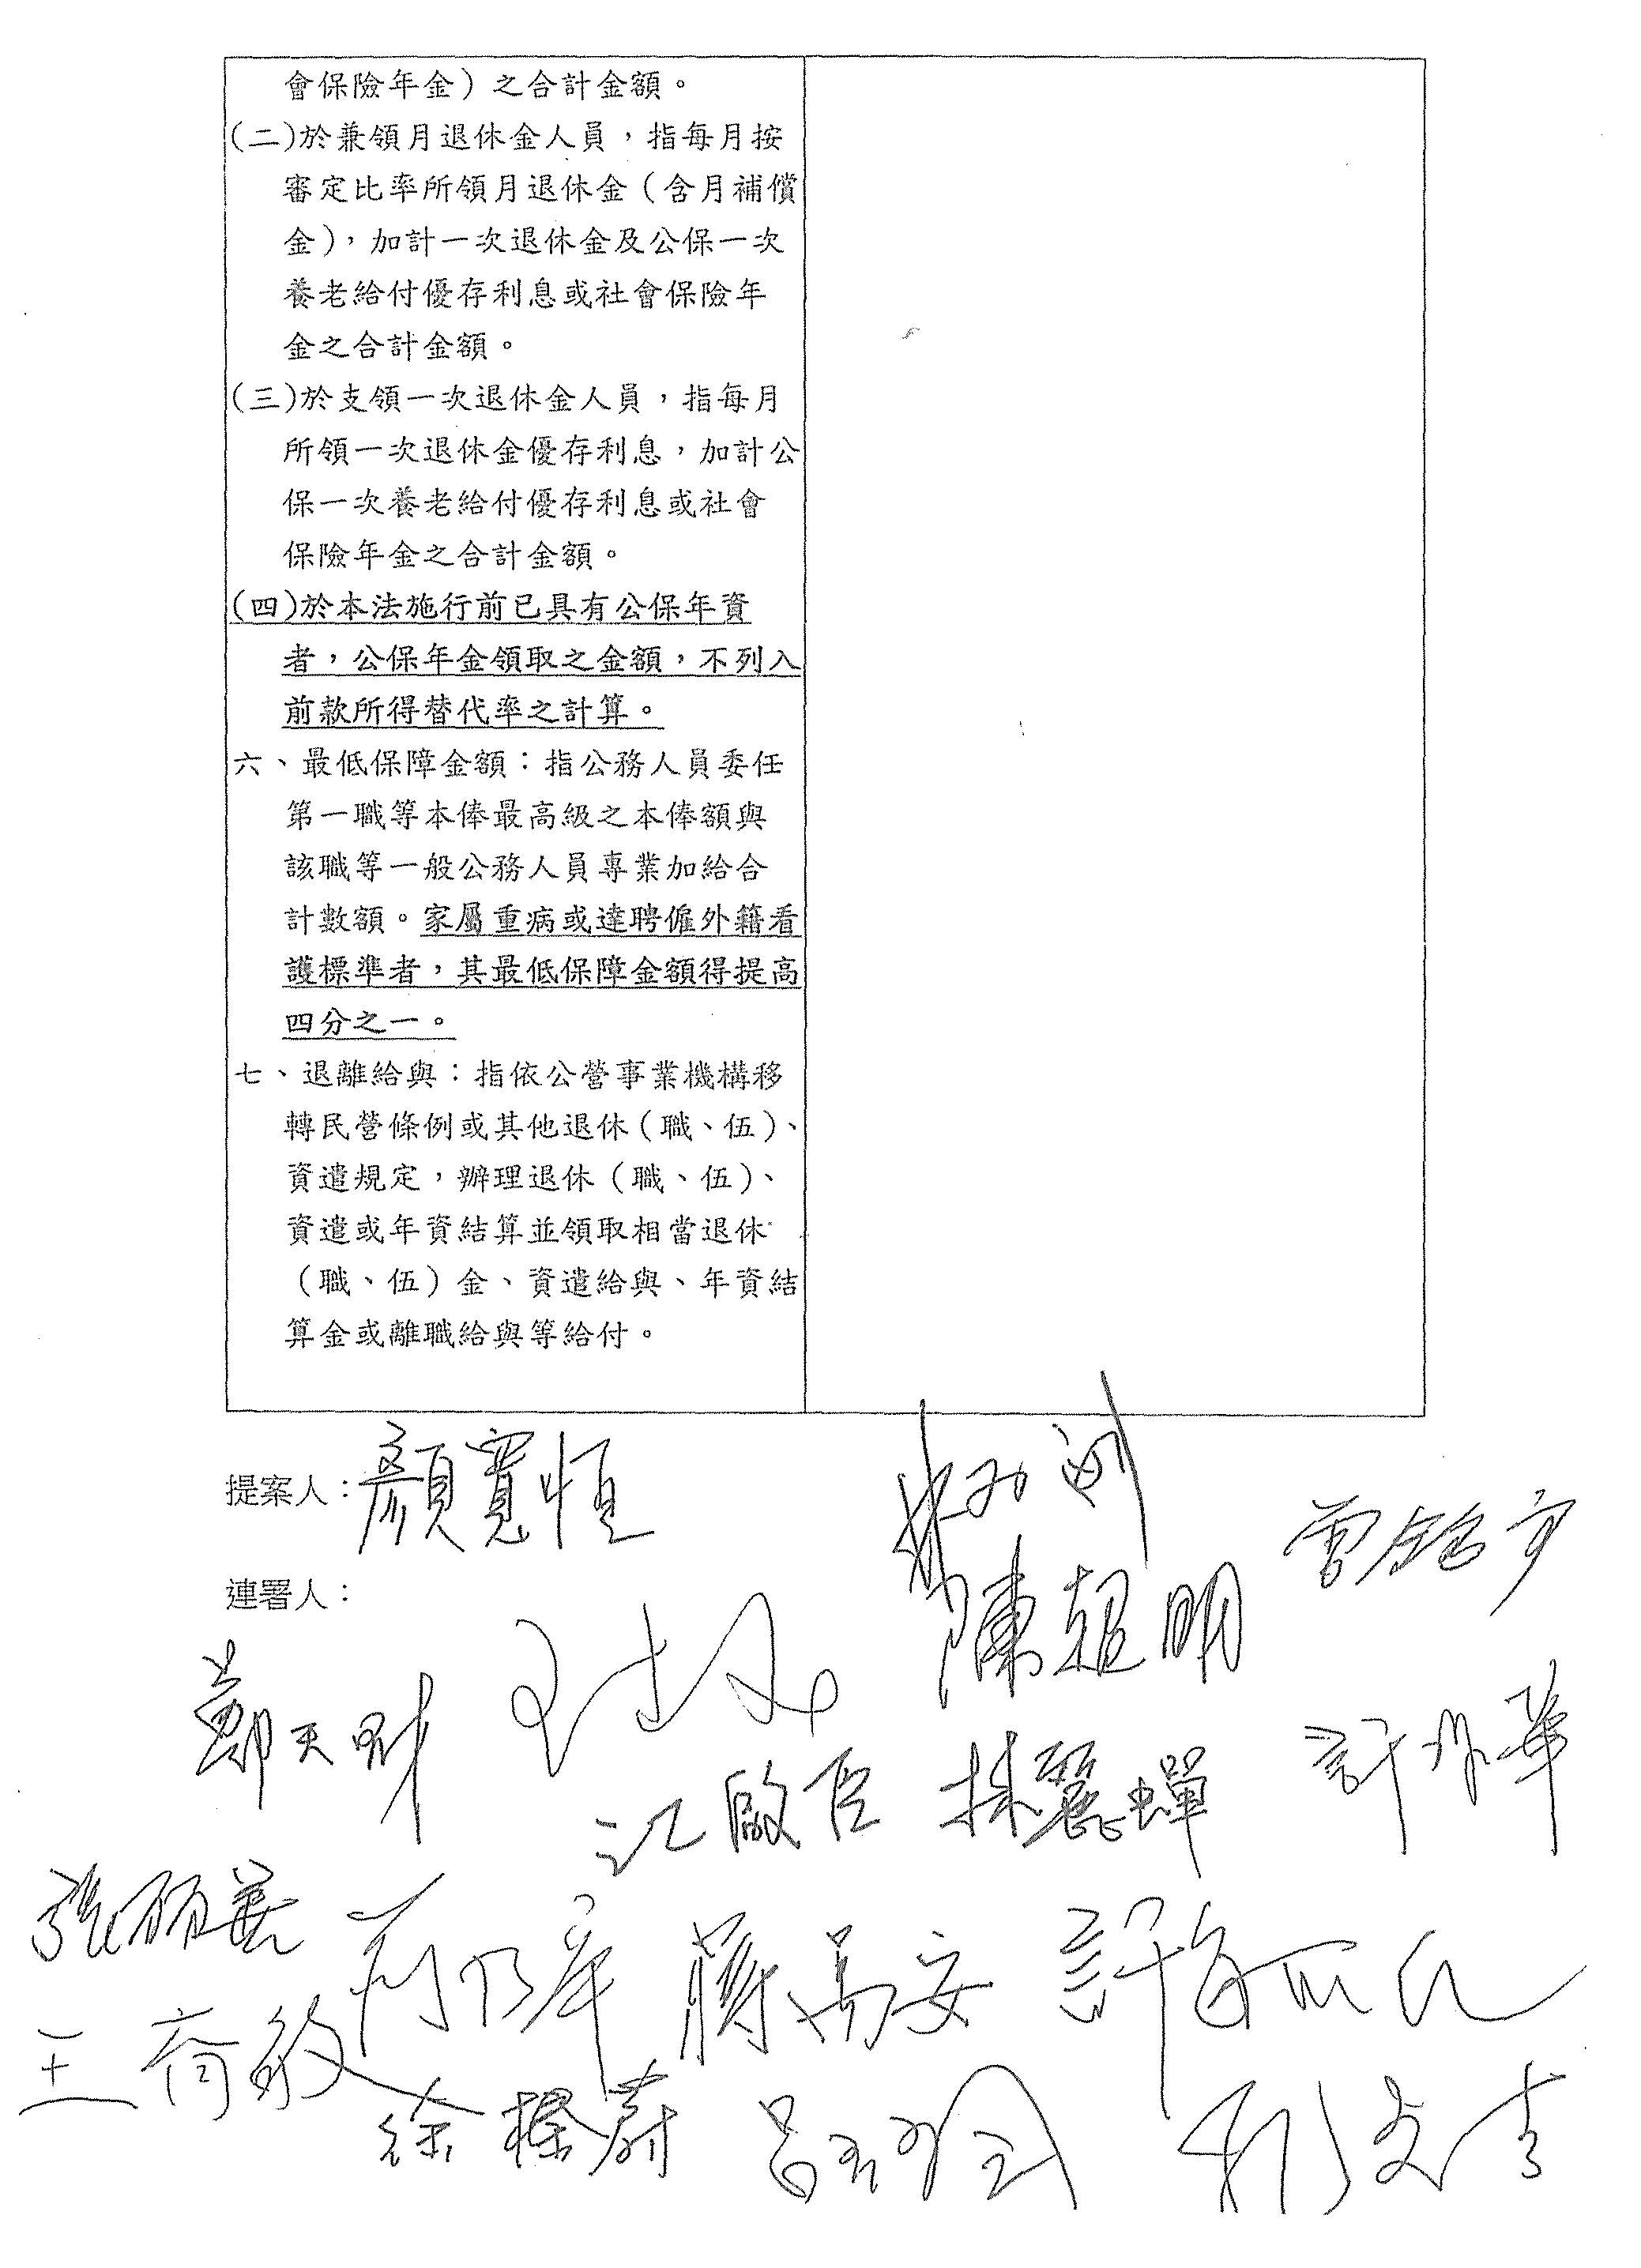 會保險年金）之合計金額。
(二)於兼領月退休金人員，指每月按
審定比率所領月退休金（含月補償
金），加計一次退休金及公保一次
養老給付優存利息或社會保險年
金之合計金額。
(三)於支領一次退休金人員，指每月
所領一次退休金優存利息，加計公
保一次養老給付優存利息或社會
保險年金之合計金額。
(四)於本法施行前已具有公保年資
者，公保年金領取之金額，不列入
前款所得替代率之計算。
六、最低保障金額：指公務人員委任
第一職等本俸最高級之本俸額與
該職等一般公務人員專業加給合
計數額。家屬重病或達聘僱外籍看
護標準者，其最低保障金額得提高
四分之一。
七、退離給與：指依公營事業機構移
轉民營條例或其他退休（職、伍）、
資遣規定，辦理退休（職、伍）、
資遣或年資結算並領取相當退休
（職、伍）金、資遣給與、年資結
算金或離職給與等給付。
提案人：顏寬恒
連署人：
陳超明
鄭天財
江啟臣 林麗蟬
張麗善 蔣萬安
徐榛蔚